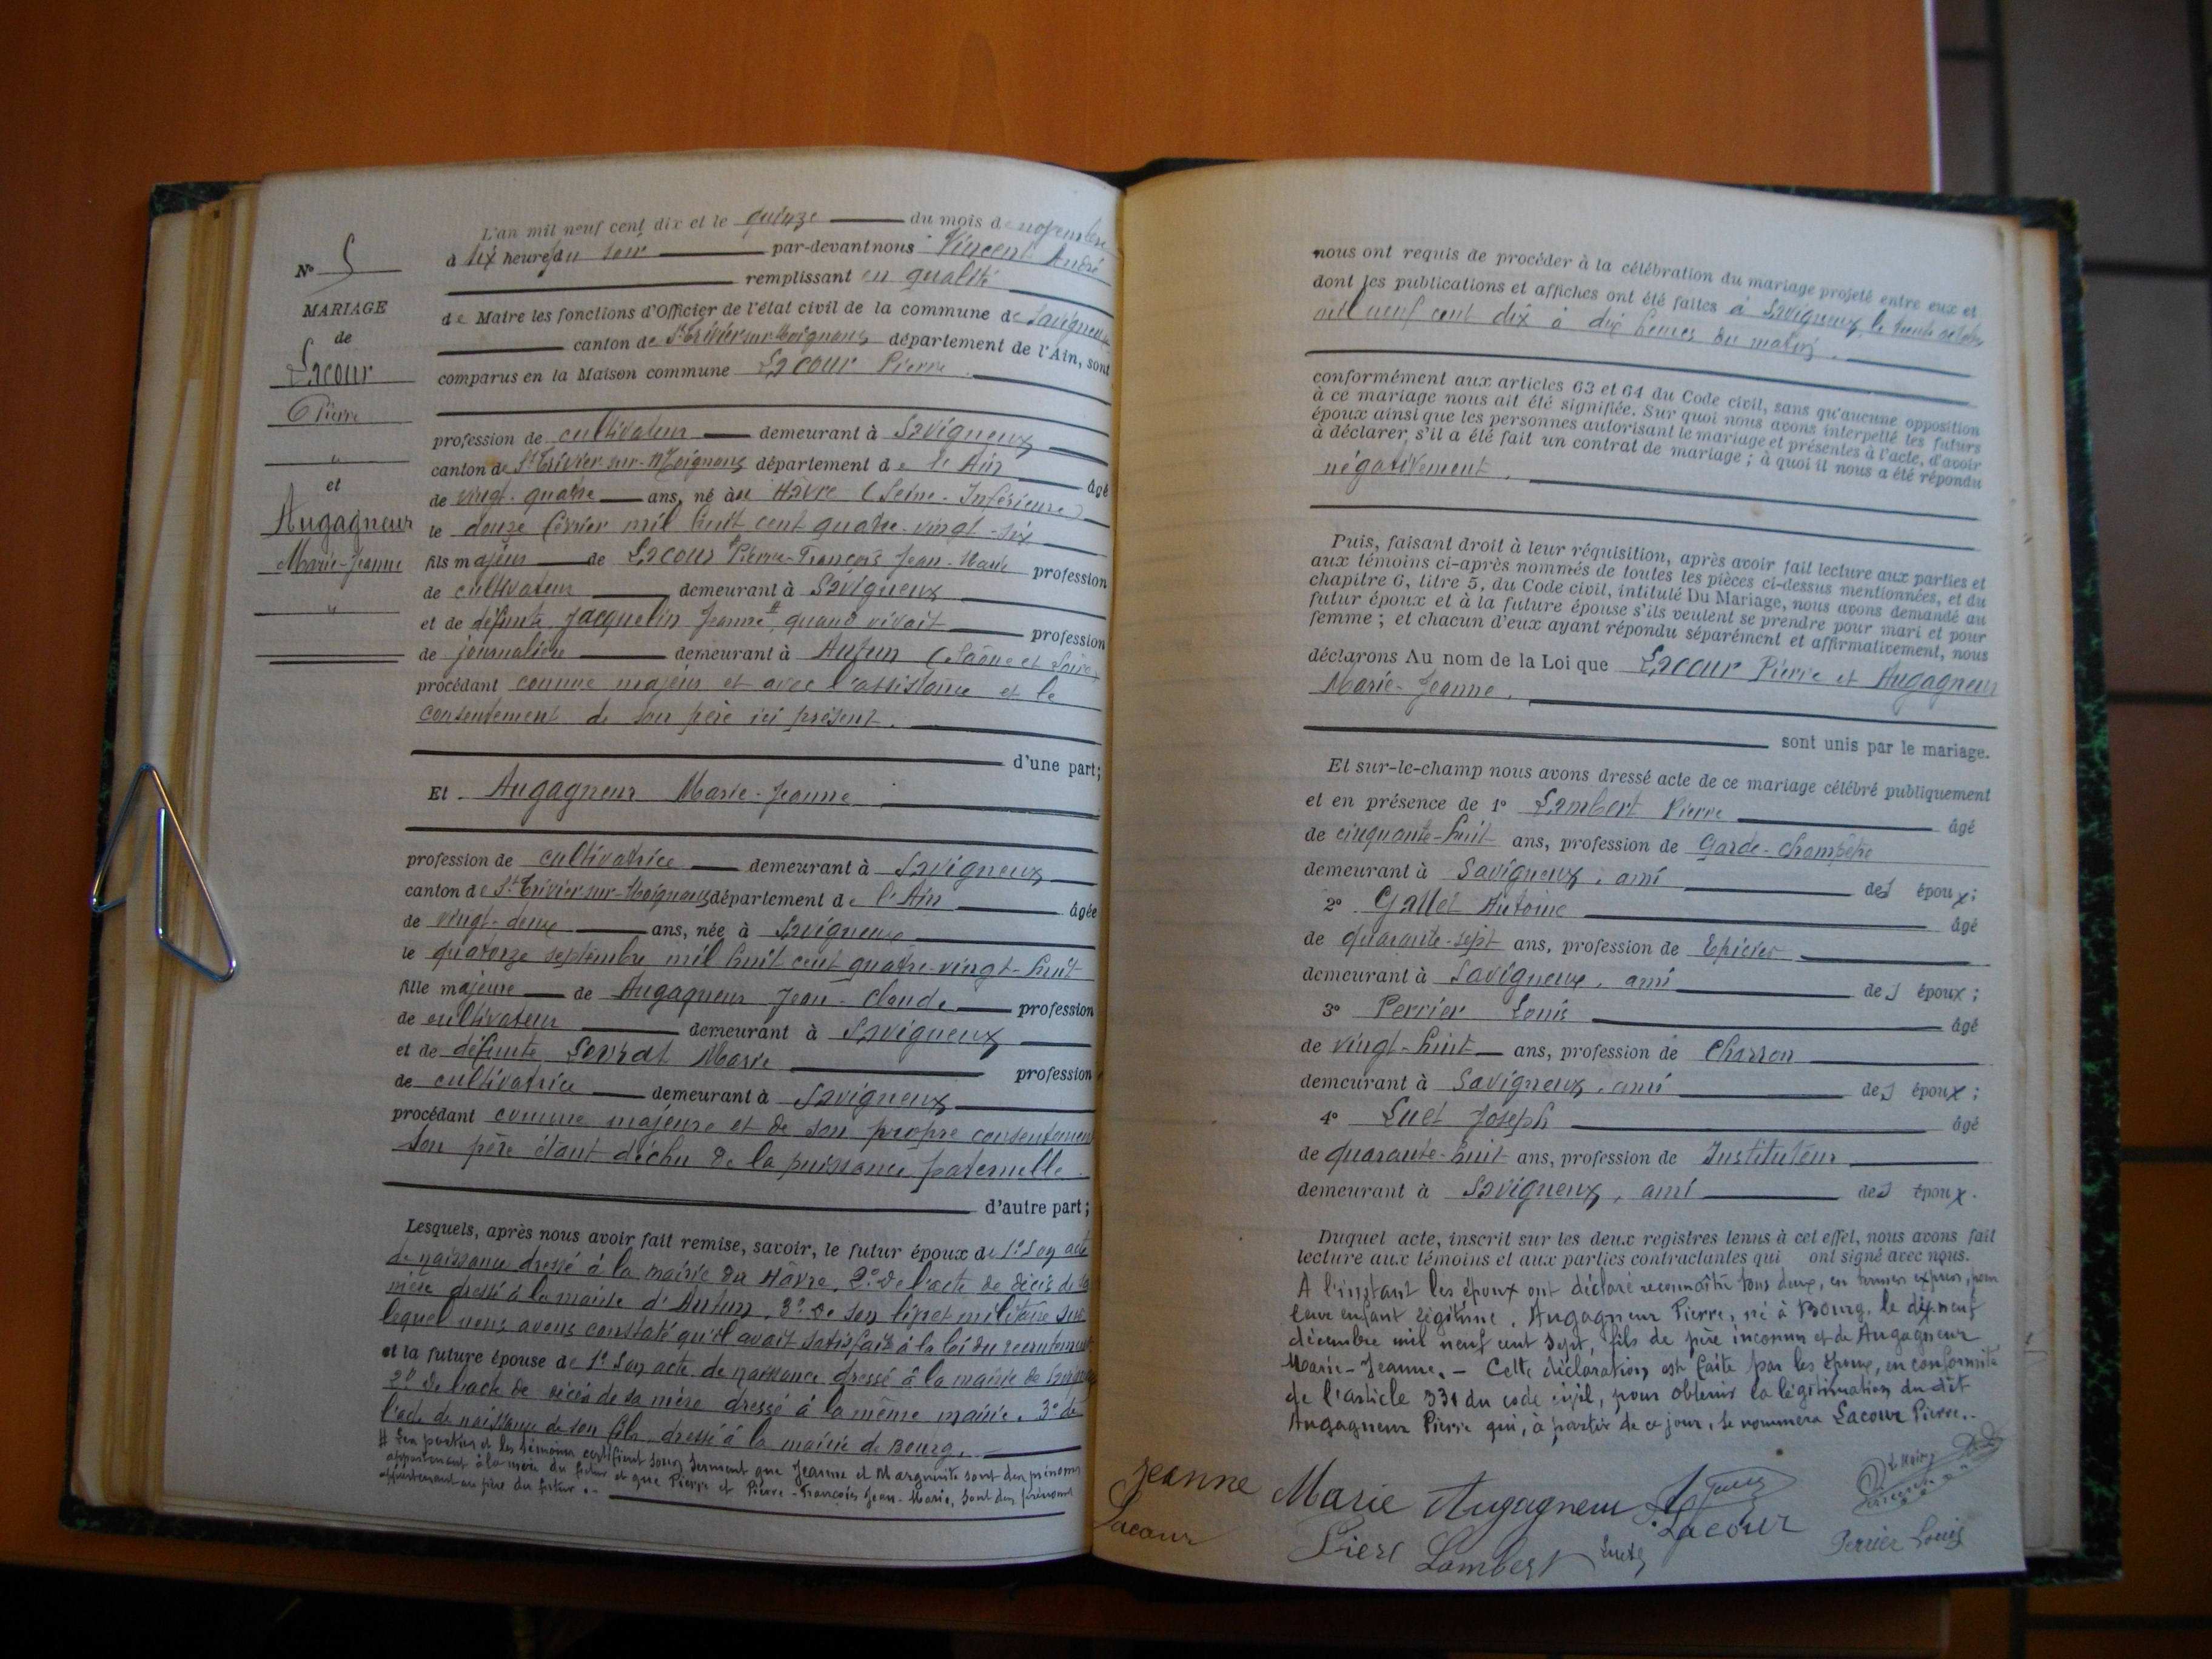 N° 5
MARIAGE
de
Lacour
Pierre
"
et
Augagneur
Marie-Jeanne
"
L'an mil neuf cent dix et le quinze du mois de novembre
à six heures du soir par-devant nous Vincent André
remplissant en qualité
de Maire les fonctions d'Officier de l'état civil de la commune de Savigneux
canton de St Trivier sur Moignans département de l'Ain, sont
comparus en la Maison commune Lacour Pierre.
profession de cultivateur demeurant à Savigneux
canton de St Trivier-sur-Moignans département de l'Ain âgé
de vingt-quatre ans, né au Hâvre (Seine-Inférieure)
le douze février mil huit cent quatre-vingt-six
fils majeur de Lacour # Pierre-François Jean-Marie profession
de cultivateur demeurant à Savigneux
et de défunte Jacquelin Jeanne # quand vivait profession
de journalière demeurant à Autun (Saône et Loire)
procédant comme majeur et avec l'assistance et le
consentement de son père ici présent.
d'une part;
Et Augagneur Marie-Jeanne
profession de cultivatrice demeurant à Savigneux
canton de St Trivier-sur-Moignans département de l'Ain âgée
de vingt-deux ans, née à Savigneux
le quatorze septembre mil huit cent quatre-vingt-huit
fille majeure de Augagneur Jean-Claude profession
de cultivateur demeurant à Savigneux
et de défunte Marie profession
de cultivatrice demeurant à Savigneux
procédant comme majeure et de son propre consentement
son père étant déchu de la puissance paternelle.
d'autre part;
Lesquels, après nous avoir fait remise, savoir, le futur époux de 1° Son acte
de naissance dressé à la mairie du Hâvre, 2° de l'acte de décès de sa
mère dressé à la mairie d'Autun, 3° de son livret militaire sur
lequel nous avons constaté qu'il avait satisfait à la loi du recrutement
et la future épouse de 1° Son acte de naissance dressé à la mairie de Savigneux
2° de l'acte de décès de sa mère dressé à la même mairie. 3° de
l'acte de naissance de son fils dressé à la mairie de Bourg.
# Les parties et les témoins certifient sous serment que Jeanne et Marguerite sont des prénoms
appartenant à la mère du futur et que Pierre et Pierre-François Jean-Marie, sont des prénoms
appartenant au père du futur.
nous ont requis de procéder à la célébration du mariage projeté entre eux et
dont les publications et affiches ont été faites à Savigneux le trente octobre
mil neuf cent dix à dix heures du matin.
conformément aux articles 63 et 64 du Code civil, sans qu'aucune opposition
à ce mariage nous ait été signifiée. Sur quoi nous avons interpellé les futurs
époux ainsi que les personnes autorisant le mariage et présentes à l'acte, d'avoir
à déclarer, s'il a été fait un contrat de mariage; à quoi il nous a été répondu
négativement.
Puis, faisant droit à leur réquisition, après avoir fait lecture aux parties et
aux témoins ci-après nommés de toutes les pièces ci-dessus mentionnées, et du
chapitre 6, titre 5, du Code civil, intitulé Du Mariage, nous avons demandé au
futur époux et à la future épouse s'ils veulent se prendre pour mari et pour
femme; et chacun d'eux ayant répondu séparément et affirmativement, nous
déclarons Au nom de la Loi que Lacour Pierre et Augagneur
Marie-Jeanne.
sont unis par le mariage.
Et sur-le-champ nous avons dressé acte de ce mariage célébré publiquement
et en présence de 1° Lambert Pierre âgé
de cinquante-huit ans, profession de Garde-champêtre
demeurant à Savigneux, ami des époux;
2° Gallet Antoine âgé
de quarante-sept ans, profession de Epicier
demeurant à Savigneux, ami des époux;
3° Perrier Louis âgé
de vingt-huit ans, profession de Charron
demeurant à Savigneux, ami des époux;
4° Luet Joseph âgé
de quarante-huit ans, profession de Instituteur
demeurant à Savigneux, ami des époux.
Duquel acte, inscrit sur les deux registres tenus à cet effet, nous avons fait
lecture aux témoins et aux parties contractantes qui ont signé avec nous.
A l'instant les époux ont déclaré reconnaître tous deux, en termes exprès, pour
leur enfant légitime, Augagneur Pierre, né à Bourg, le dix-neuf
décembre mil neuf cent sept, fils de père inconnu et de Augagneur
Marie-Jeanne. – Cette déclaration est faite par les époux, en conformité
de l'article 331 du code civil, pour obtenir la légitimation du dit
Augagneur Pierre qui, à partir de ce jour, se nommera Lacour Pierre.
Jeanne Marie Augagneur
Lacour Lacour
Pierre Lambert Luet Perrier Louis